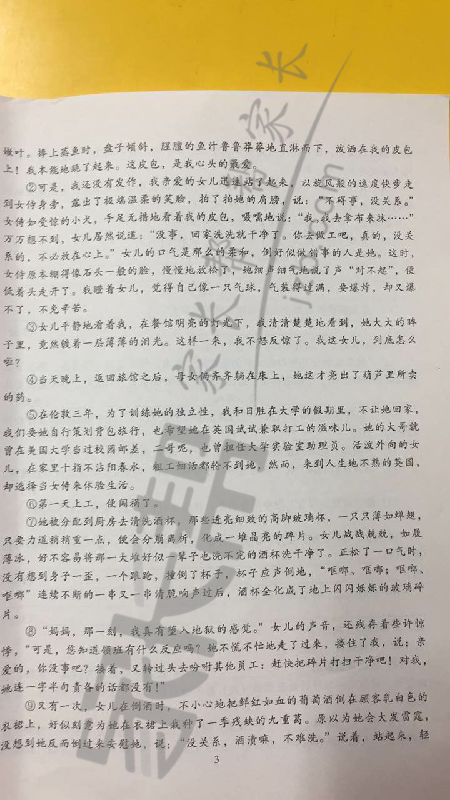 嫩叶。捧上蒸鱼时，盘子倾斜，腥膻的鱼汁鲁鲁莽莽地直淋而下，泼洒在我的皮包
上！我本能地跳了起来。这皮包，是我心头的最爱。
②可是，我还没有发作，我亲爱的女儿迅速站了起来，以旋风般的速度快步走
到女侍身旁，露出了极端温柔的笑脸，拍了拍她的肩膀，说：“不碍事，没关系。”
女侍如受惊的小犬，手足无措地看着我的皮包，嗫嚅地说：“我，我去拿布来抹……”
万万想不到，女儿居然说道：“没事，回家洗洗就干净了。你去做工吧，真的，没关
系的，不必放在心上。”女儿的口气是那么的柔和，倒好似做错事的人是她。这时，
女侍原本绷得像石头一般的脸，慢慢地放松了，她细声细气地说了声“对不起”，便
低着头走开了。我瞪着女儿，觉得自己像一只气球，气装得过满，要爆炸，却又爆
不了，不免辛苦。
③女儿平静地看着我，在餐馆明亮的灯光下，我清清楚楚地看到，她大大的眸
子里，竟然镀着一层薄薄的泪光。这样一来，我不想反惊了。我这女儿，到底怎么
啦？
④当天晚上，返回旅馆之后，母女俩齐齐躺在床上，她这才亮出了葫芦里所卖
的药。
⑤在伦敦三年，为了训练她的独立性，我和日胜在大学的假期里，不让她回家，
我们要她自行策划背包旅行，也希望她在英国试试兼职打工的滋味儿。她的大哥就
曾在美国大学当过校园邮差，二哥呢，也曾担任大学实验室助理员。活泼外向的女
儿，在家里十指不沾阳春水，粗工细活都轮不到她，然而，来到人生地不熟的英国，
却选择当女侍来体验生活。
⑥第一天上工，便闯祸了。
⑦她被分配到厨房去清洗酒杯，那些透亮细致的高脚玻璃杯，一只只薄如蝉翅，
只要力道稍稍重一点，便会分崩离析，化成一堆晶亮的碎片。女儿战战兢兢，如履
薄冰，好不容易将那一大堆好似一辈子也洗不完的酒杯洗干净了。正松了一口气时，
没有想到身子一歪，一个踉跄，撞倒了杯子，杯子应声倒地，“哐啷、哐啷；哐啷、
哐啷”连续不断的一串又一串清脆响声过后，酒杯全化成了地上闪闪烁烁的玻璃碎
片。
⑧“妈妈，那一刻，我真有堕入地狱的感觉。”女儿的声音，还残存着些许惊
悸，“可是，您知道领班有什么反应吗？她不慌不忙地走了过来，搂住了我，说：亲
爱的，你没事吧？接着，又转过头去吩咐其他员工：赶快把碎片打扫干净吧！对我，
她连一字半句责备的话都没有！”
⑨又有一次，女儿在倒酒时，不小心地把鲜红如血的葡萄酒倒在顾客乳白色的
衣裙上，好似刻意为她在衣裙上栽种了一季残缺的九重葛。原以为她会大发雷霆，
没想到她反而倒过来安慰她，说：“没关系，酒渍嘛，不难洗。”说着，站起来，轻
3